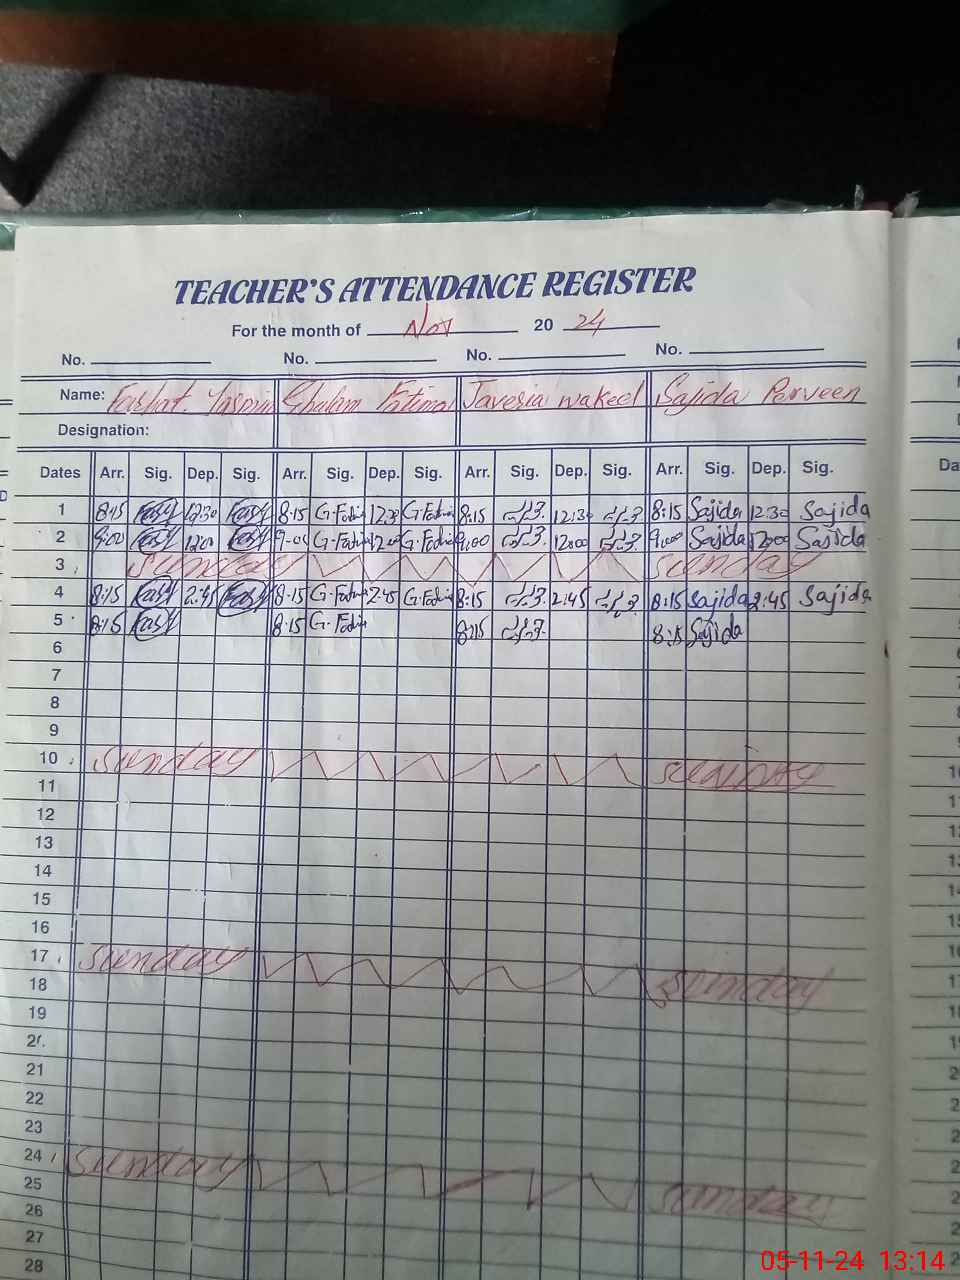 TEACHER'S ATTENDANCE REGISTER
For the month of Nov 20 24
No. No. No. No.
Name: Farhat. Yasmin Ghulam Fatima Javeria wakeel Sajida Parveen
Designation:
Dates Arr. Sig. Dep. Sig. Arr. Sig. Dep. Sig. Arr. Sig. Dep. Sig. Arr. Sig. Dep. Sig.
1 8:15 12:30 8:15 G.Fatima 12:30 G.Fatima 8:15 12:30 8:15 Sajida 12:30 Sajida
2 9:00 12:00 9:00 G.Fatima 12:00 G.Fatima 9:00 12:00 9:00 Sajida 12:00 Sajida
3 Sunday Sunday
4 8:15 2:45 8:15 G.Fatima 2:45 G.Fatima 8:15 2:45 8:15 Sajida 2:45 Sajida
5 8:15 8:15 G.Fatima 8:15 8:15 Sajida
6
7
8
9
10 Sunday Sunday
11
12
13
14
15
16
17 Sunday Sunday
18
19
20
21
22
23
24 Sunday Sunday
25
26
27
28
05-11-24 13:14